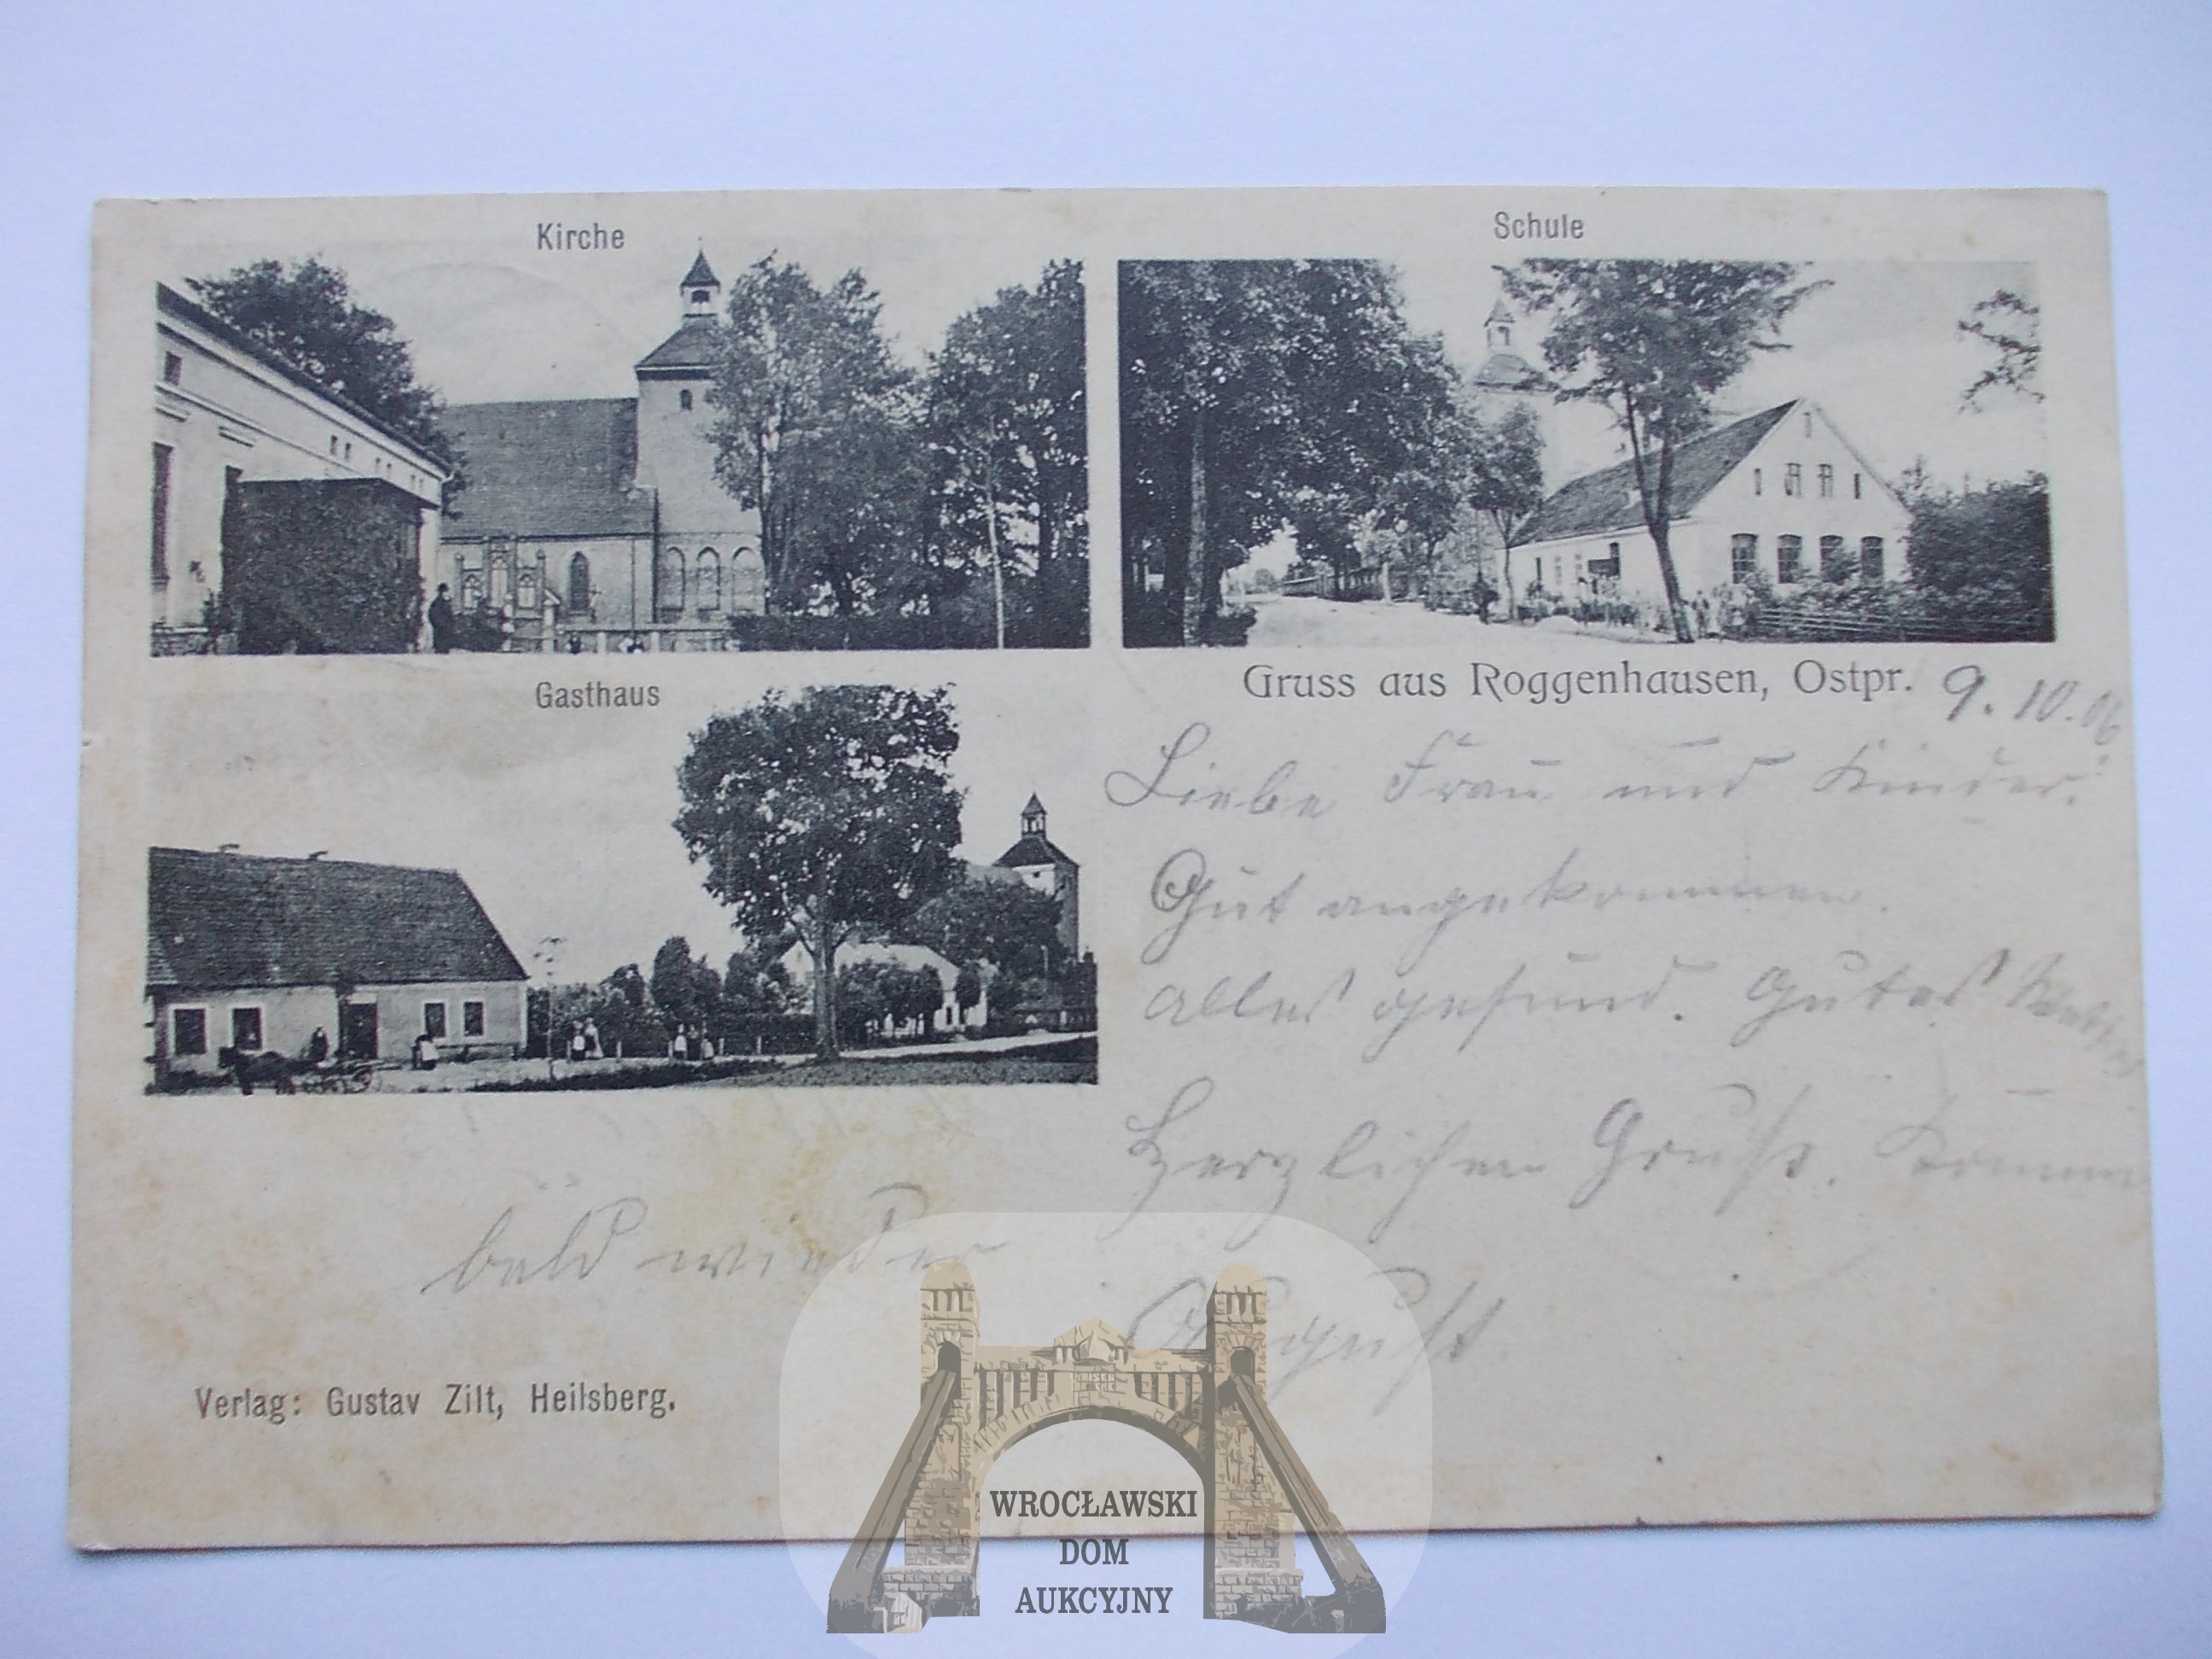 Kirche
Schule
Gasthaus
Gruss aus Roggenhausen, Ostpr.
9.10.06
Liebe Frau und Kinder!
Gut angekommen.
alles gesund. Gutes
Herzlichen Gruß. Komme
bald wieder
August.
Verlag: Gustav Zilt, Heilsberg.
WROCŁAWSKI
DOM
AUKCYJNY